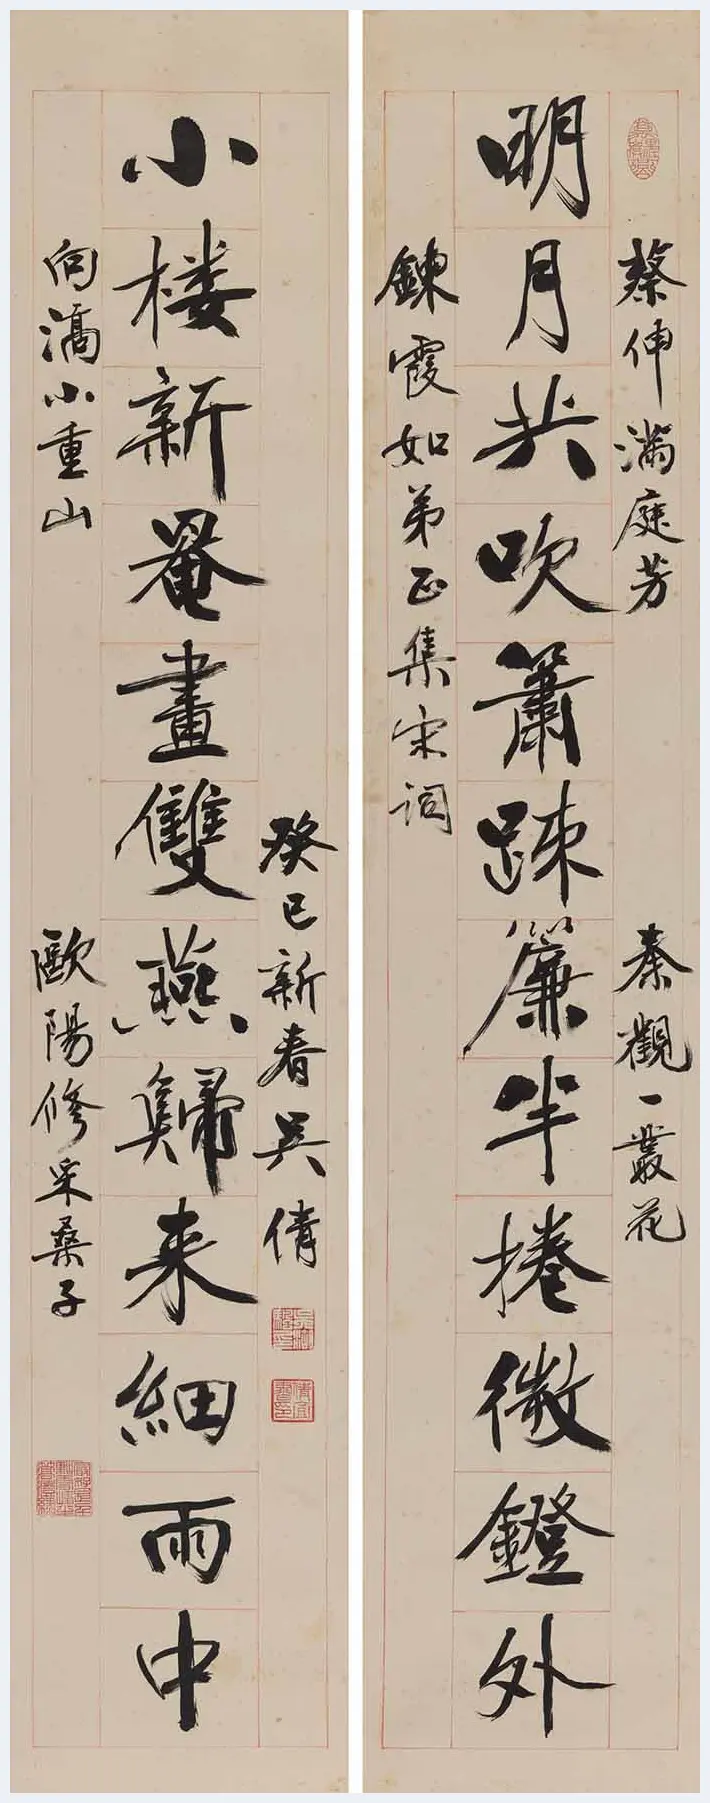 蔡伸滿庭芳
秦觀一叢花
明月共吹簫疎簾半捲微鐙外
鍊霞如弟正集宋詞
癸巳新春吴倩
小楼新罨畫雙燕歸来細雨中
向滈小重山
歐陽修采桑子